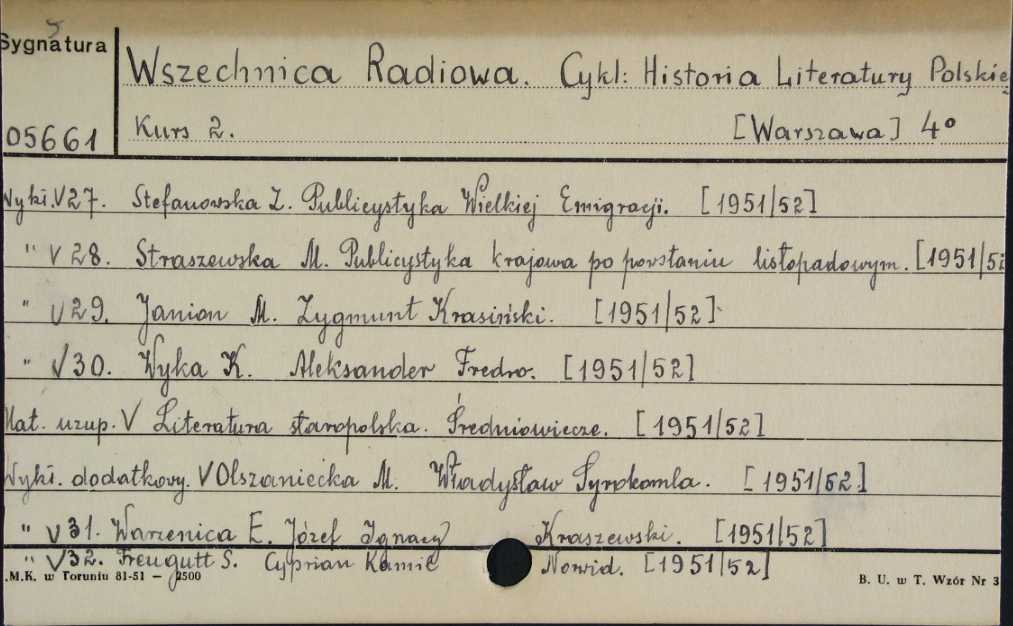 Sygnatura
Wszechnica Radiowa. Cykl: Historia Literatury Polskie
05661 Kurs 2. [Warszawa] 4°
Wykł. V 27. Stefanowska Z. Publicystyka Wielkiej Emigracji. [1951/52]
" V 28. Straszewska M. Publicystyka krajowa po powstaniu listopadowym. [1951/52
" V 29. Janion M. Zygmunt Krasiński. [1951/52]
" V 30. Wyka K. Aleksander Fredro. [1951/52]
Mat. uzup. V Literatura staropolska. Średniowiecze. [1951/52]
Wykł. dodatkowy. V Olszaniecka M. Władysław Syrokomla. [1951/52]
" V 31. Warzenica E. Józef Ignacy Kraszewski. [1951/52]
" V 32. Freugutt S. Cyprian Kamil Norwid. [1951/52]
.M.K. w Toruniu 81-51 — 2500 B. U. w T. Wzór Nr 3